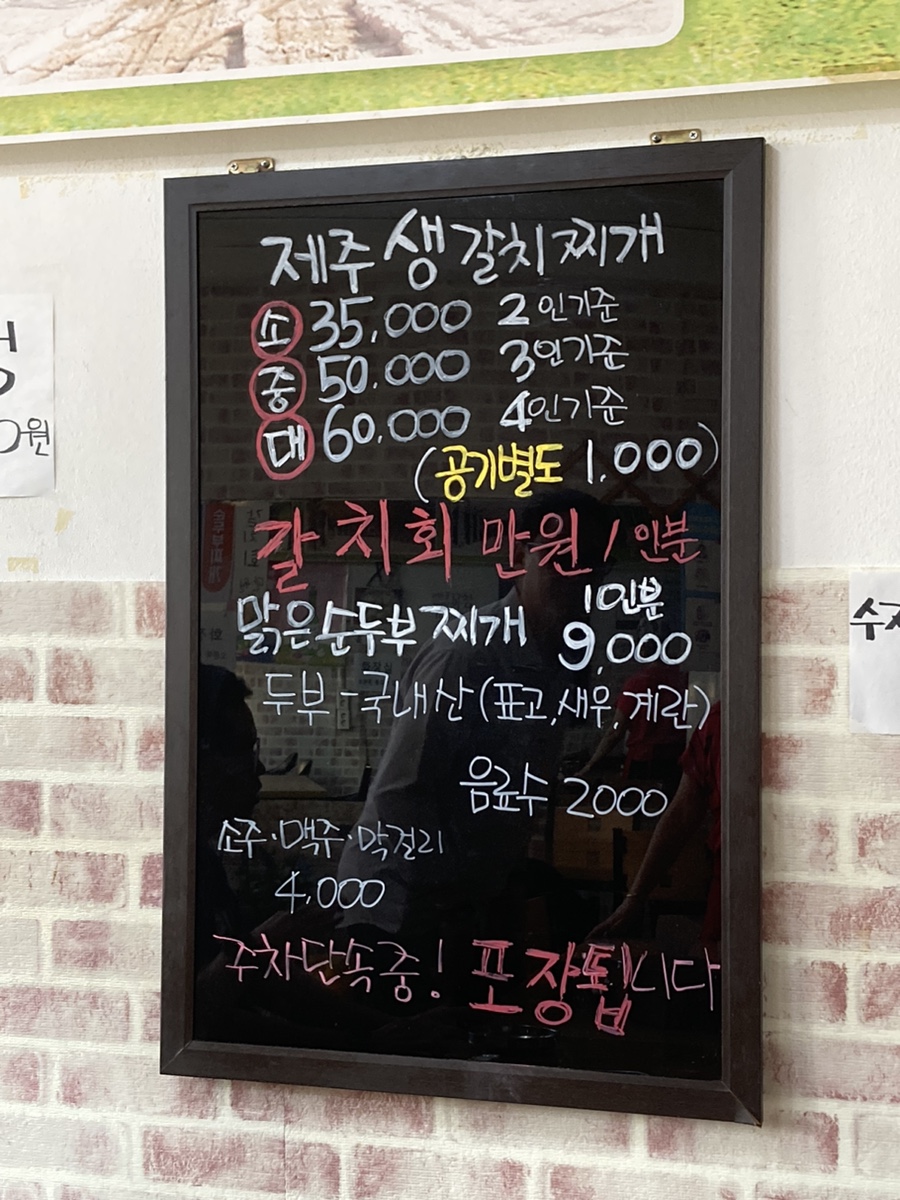 제주 생갈치찌개
소 35,000 2인기준
중 50.000 3인기준
대 60.000 4인기준
(공기별도 1,000)
갈치회 만원/인분
맑은순두부찌개 1인분 9,000
두부-국내산(표고,새우,계란)
음료수 2000
소주·맥주·막걸리
4,000
주차단속중! 포장됩니다
원